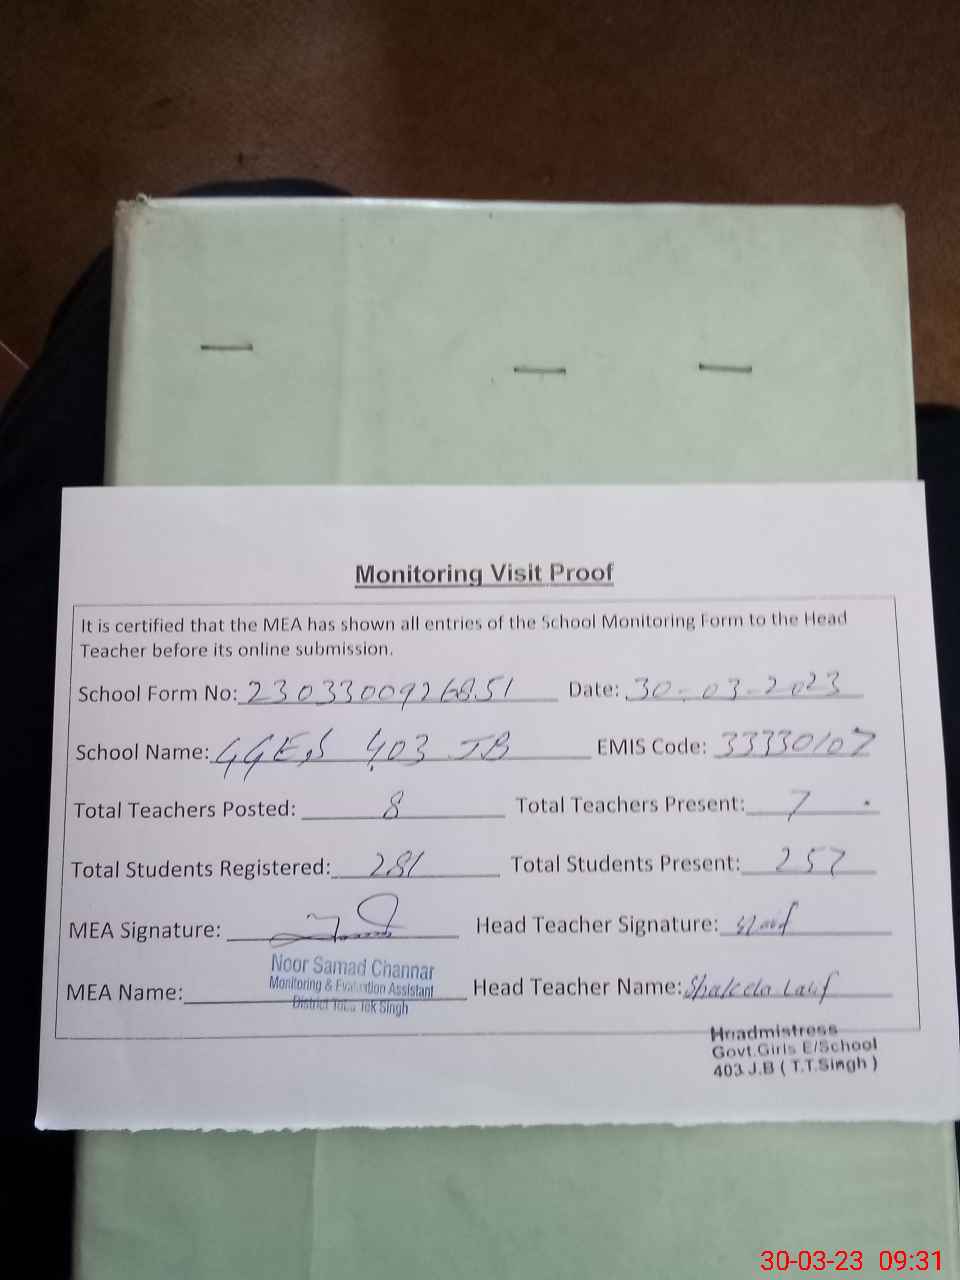 Monitoring Visit Proof
It is certified that the MEA has shown all entries of the School Monitoring Form to the Head
Teacher before its online submission.
School Form No: 2303300926851 Date: 30-03-2023
School Name: GGES 403 JB EMIS Code: 33330107
Total Teachers Posted: 8 Total Teachers Present: 7
Total Students Registered: 281 Total Students Present: 257
MEA Signature: Head Teacher Signature:
Noor Samad Channar
Monitoring & Evaluation Assistant
District Toba Tek Singh
MEA Name: Head Teacher Name: Shakela Latif
Headmistress
Govt.Girls E/School
403 J.B ( T.T.Singh )
30-03-23 09:31